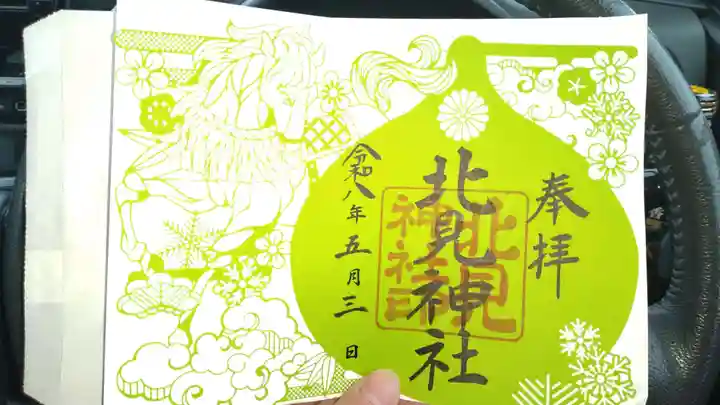 奉拝
北見神社
北見
神社印
令和八年五月三日